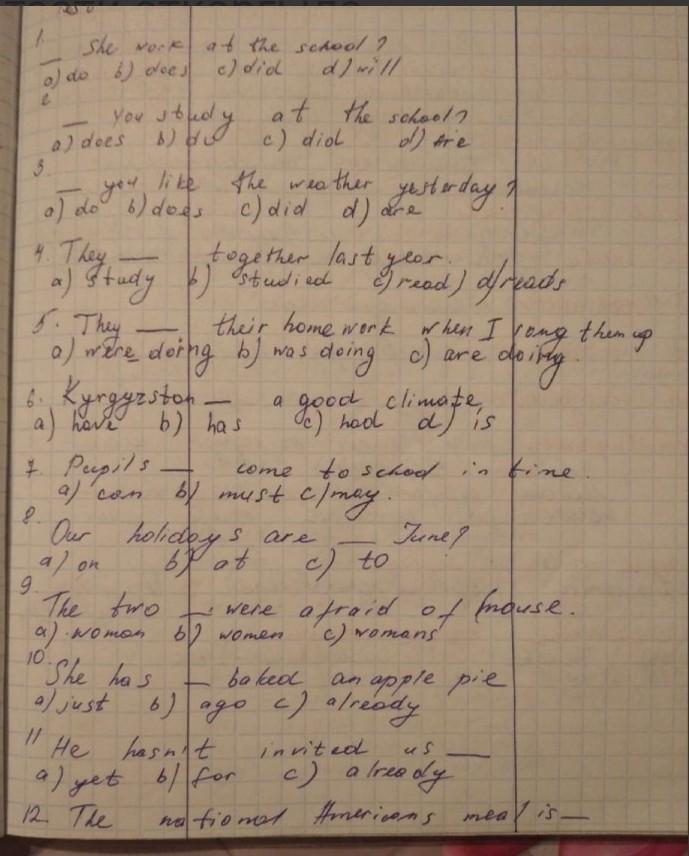 1. __ She work at the school?
a) do b) does c) did d) will
2
__ you study at the school?
a) does b) do c) did d) Are
3
__ you like the weather yesterday?
a) do b) does c) did d) are
4. They __ together last year.
a) study b) studied c) read) d) reads
5. They __ their home work when I rang them up
a) were doing b) was doing c) are doing.
6. Kyrgyzstan __ a good climate,
a) have b) has c) had d) is
7. Pupils __ come to school in time.
a) can b) must c) may.
8.
Our holidays are __ June?
a) on b) at c) to
9.
The two __ were afraid of mouse.
a) woman b) women c) womans
10.
She has __ baked an apple pie
a) just b) ago c) already
11
He hasn't invited us __
a) yet b) for c) already
12. The national Americans meal is __